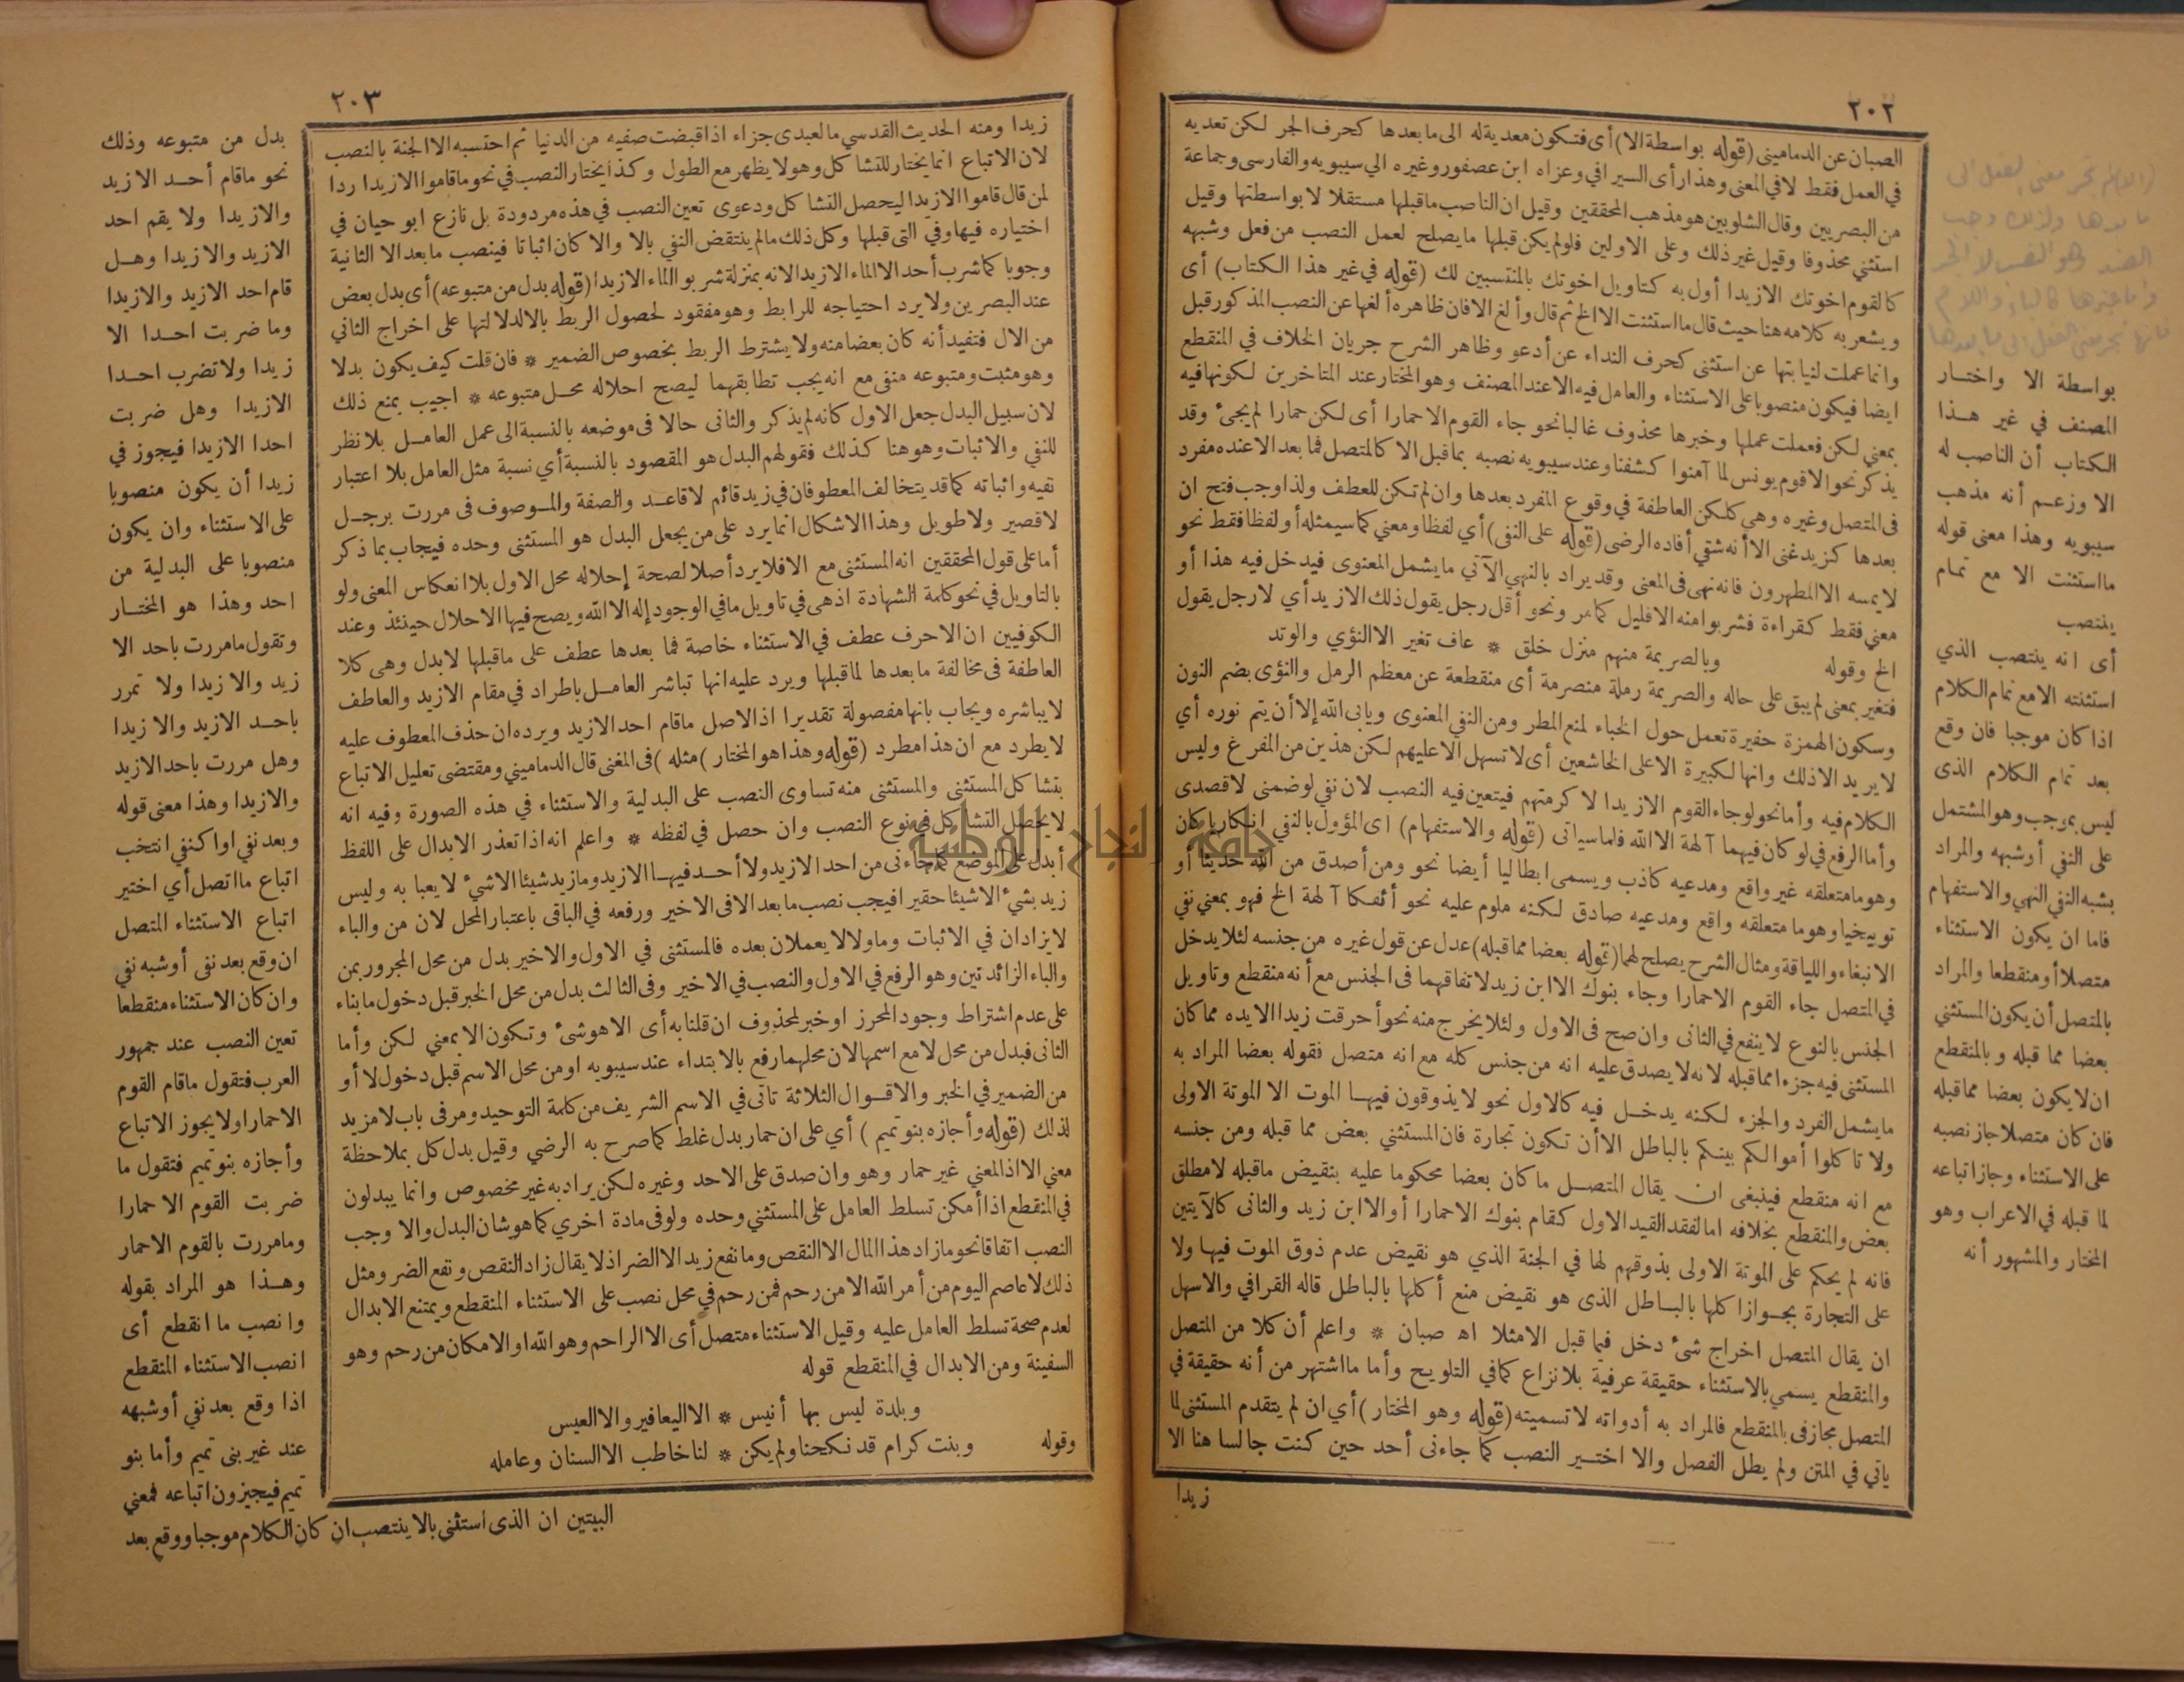 ٢٠٢
الصبان عن الدماميني (قوله بواسطة الا) أى فتكون معدية له الى ما بعدها كحرف الجر لكن تعديه
في العمل فقط لا في المعنى وهذا رأى السيرافي وعزاه ابن عصفور وغيره الي سيبويه والفارسى وجماعة
من البصريين وقال الشلوبين هو مذهب المحققين وقيل ان الناصب ما قبلها مستقلا لا بواسطتها وقيل
استثني محذوفا وقيل غير ذلك وعلى الاولين فلو لم يكن قبلها ما يصلح لعمل النصب من فعل وشبهه
كالقوم اخوتك الا زيدا أول به كتاويل اخوتك بالمنتسبين لك (قوله في غير هذا الكتاب) أى
ويشعر به كلامه هنا حيث قال ما استثنت الا الخ ثم قال وألغ الا فان ظاهره ألغها عن النصب المذكور قبل
وانما عملت لنيابتها عن استثنى كحرف النداء عن أدعو وظاهر الشرح جريان الخلاف في المنقطع
ايضا فيكون منصوبا على الاستثناء والعامل فيه الا عند المصنف وهو المختار عند المتاخرين لكونها فيه
بمعني لكن فعملت عملها وخبرها محذوف غالبا نحو جاء القوم الا حمارا أى لكن حمارا لم يجئ وقد
يذكر نحو الا قوم يونس لما آمنوا كشفنا وعند سيبويه نصبه بما قبل الا كالمتصل فما بعد الا عنده مفرد
فى المتصل وغيره وهي كلكن العاطفة في وقوع المفرد بعدها وان لم تكن للعطف ولذا وجب فتح ان
بعدها كزيد غنى الا أنه شقي أفاده الرضى (قوله على النفى) أي لفظا ومعني كما سيمثله أو لفظا فقط نحو
لا يمسه الا المطهرون فانه نهى فى المعنى وقد يراد بالنهي الآتي ما يشمل المعنوى فيدخل فيه هذا أو
معني فقط كقراءة فشربوا منه الا قليل كما مر ونحو أقل رجل يقول ذلك الا زيد أي لا رجل يقول
الخ وقوله وبالصريمة منهم منزل خلق * عاف تغير الا النؤي والوتد
فتغير بمعنى لم يبق على حاله والصريمة رملة منصرمة أى منقطعة عن معظم الرمل والنؤى بضم النون
وسكون الهمزة حفيرة تعمل حول الخباء لمنع المطر ومن النفي المعنوى ويابى الله إلا أن يتم نوره أي
لا يريد الا ذلك وانها لكبيرة الا على الخاشعين أى لا تسهل الا عليهم لكن هذين من المفرغ وليس
الكلام فيه وأما نحو لو جاء القوم الا زيدا لاكرمتهم فيتعين فيه النصب لان نفي لو ضمنى لا قصدى
وأما الرفع في لو كان فيهما آلهة الا الله فلما سياتى (قوله والاستفهام) اى المؤول بالنفي انكاريا كان
وهو ما متعلقه غير واقع ومدعيه كاذب ويسمى ابطاليا أيضا نحو ومن أصدق من الله حديثا أو
توبيخيا وهو ما متعلقه واقع ومدعيه صادق لكنه ملوم عليه نحو أئفكا آلهة الخ فهو بمعني نفي
الانبغاء واللياقة ومثال الشرح يصلح لهما (قوله بعضا مما قبله) عدل عن قول غيره من جنسه لئلا يدخل
في المتصل جاء القوم الا حمارا وجاء بنوك الا ابن زيد لاتفاقهما فى الجنس مع أنه منقطع وتاويل
الجنس بالنوع لا ينفع في الثانى وان صح فى الاول ولئلا يخرج منه نحو أحرقت زيدا الا يده مما كان
المستثنى فيه جزءا مما قبله لانه لا يصدق عليه انه من جنس كله مع انه متصل فقوله بعضا المراد به
ما يشمل الفرد والجزء لكنه يدخل فيه كالاول نحو لا يذوقون فيها الموت الا الموتة الاولى
ولا تاكلوا أموالكم بينكم بالباطل الا أن تكون تجارة فان المستثني بعض مما قبله ومن جنسه
مع انه منقطع فينبغى ان يقال المتصل ما كان بعضا محكوما عليه بنقيض ما قبله لا مطلق
بعض والمنقطع بخلافه اما لفقد القيد الاول كقام بنوك الا حمارا أو الا ابن زيد والثانى كالآيتين
فانه لم يحكم على الموتة الاولى بذوقهم لها في الجنة الذي هو نقيض عدم ذوق الموت فيها ولا
على التجارة بجواز اكلها بالباطل الذى هو نقيض منع أكلها بالباطل قاله القرافي والاسهل
ان يقال المتصل اخراج شئ دخل فيما قبل الا مثلا اه صبان * واعلم أن كلا من المتصل
والمنقطع يسمي بالاستثناء حقيقة عرفية بلا نزاع كما في التلويح وأما ما اشتهر من أنه حقيقة في
المتصل مجاز فى المنقطع فالمراد به أدواته لا تسميته (قوله وهو المختار) أي ان لم يتقدم المستثنى لما
ياتي في المتن ولم يطل الفصل والا اختير النصب كما جاءنى أحد حين كنت جالسا هنا الا
زيدا
بواسطة الا واختار
المصنف في غير هذا
الكتاب أن الناصب له
الا وزعم أنه مذهب
سيبويه وهذا معنى قوله
ما استثنت الا مع تمام
ينتصب
أى انه ينتصب الذي
استثنته الا مع تمام الكلام
اذا كان موجبا فان وقع
بعد تمام الكلام الذى
ليس بموجب وهو المشتمل
على النفي أو شبهه والمراد
بشبه النفي النهي والاستفهام
فاما ان يكون الاستثناء
متصلا أو منقطعا والمراد
بالمتصل أن يكون المستثني
بعضا مما قبله وبالمنقطع
ان لا يكون بعضا مما قبله
فان كان متصلا جاز نصبه
على الاستثناء وجاز اتباعه
لما قبله في الاعراب وهو
المختار والمشهور أنه
٢٠٣
زيدا ومنه الحديث القدسي ما لعبدى جزاء اذا قبضت صفيه من الدنيا ثم احتسبه الا الجنة بالنصب
لان الاتباع انما يختار للتشاكل وهو لا يظهر مع الطول وكذا يختار النصب في نحو ما قاموا الا زيدا ردا
لمن قال قاموا الا زيدا ليحصل التشاكل ودعوى تعين النصب في هذه مردودة بل نازع ابو حيان في
اختياره فيها وفي التى قبلها وكل ذلك ما لم ينتقض النفي بالا والا كان اثباتا فينصب ما بعد الا الثانية
وجوبا كما شرب أحد الا الماء الا زيدا لانه بمنزلة شربوا الماء الا زيدا (قوله بدل من متبوعه) أى بدل بعض
عند البصريين ولا يرد احتياجه للرابط وهو مفقود لحصول الربط بالا لدلالتها على اخراج الثاني
من الاول فتفيد أنه كان بعضا منه ولا يشترط الربط بخصوص الضمير * فان قلت كيف يكون بدلا
وهو مثبت ومتبوعه منفى مع انه يجب تطابقهما ليصح احلاله محل متبوعه * اجيب بمنع ذلك
لان سبيل البدل جعل الاول كانه لم يذكر والثانى حالا فى موضعه بالنسبة الى عمل العامل بلا نظر
للنفي والاثبات وهو هنا كذلك فقولهم البدل هو المقصود بالنسبة أي نسبة مثل العامل بلا اعتبار
نفيه واثباته كما قد يتخالف المعطوفان في زيد قائم لا قاعد والصفة والموصوف فى مررت برجل
لا قصير ولا طويل وهذا الاشكال انما يرد على من يجعل البدل هو المستثنى وحده فيجاب بما ذكر
أما على قول المحققين انه المستثنى مع الا فلا يرد أصلا لصحة إحلاله محل الاول بلا انعكاس المعنى ولو
بالتاويل في نحو كلمة الشهادة اذ هى في تاويل ما في الوجود إله الا الله ويصح فيها الاحلال حينئذ وعند
الكوفيين ان الا حرف عطف في الاستثناء خاصة فما بعدها عطف على ما قبلها لا بدل وهى كلا
العاطفة فى مخالفة ما بعدها لما قبلها ويرد عليه انها تباشر العامل باطراد في مقام الا زيد والعاطف
لا يباشره ويجاب بانها مفصولة تقديرا اذ الاصل ما قام احد الا زيد ويرده ان حذف المعطوف عليه
لا يطرد مع ان هذا مطرد (قوله وهذا هو المختار) مثله) فى المغنى قال الدماميني ومقتضى تعليل الاتباع
بتشاكل المستثنى والمستثنى منه تساوى النصب على البدلية والاستثناء في هذه الصورة وفيه انه
لا يحصل التشاكل في نوع النصب وان حصل في لفظه * واعلم انه اذا تعذر الابدال على اللفظ
أبدل على الموضع كما جاءنى من احد الا زيد ولا أحد فيها الا زيد وما زيد شيئا الا شيئ لا يعبا به وليس
زيد بشيئ الا شيئا حقيرا فيجب نصب ما بعد الا فى الاخير ورفعه في الباقى باعتبار المحل لان من والباء
لا يزادان في الاثبات وما ولا لا يعملان بعده فالمستثنى في الاول والاخير بدل من محل المجرور بمن
والباء الزائدتين وهو الرفع في الاول والنصب في الاخير وفى الثالث بدل من محل الخبر قبل دخول ما بناء
على عدم اشتراط وجود المحرز او خبر لمحذوف ان قلنا به أى الا هو شئ وتكون الا بمعني لكن وأما
الثانى فبدل من محل لا مع اسمها لان محلهما رفع بالابتداء عند سيبويه او من محل الاسم قبل دخول لا أو
من الضمير في الخبر والاقوال الثلاثة تاتى في الاسم الشريف من كلمة التوحيد ومر فى باب لا مزيد
لذلك (قوله وأجازه بنو تميم) أي على ان حمار بدل غلط كما صرح به الرضي وقيل بدل كل بملاحظة
معني الا اذ المعني غير حمار وهو وان صدق على الاحد وغيره لكن يراد به غير مخصوص وانما يبدلون
في المنقطع اذا أمكن تسلط العامل على المستثني وحده ولو فى مادة اخري كما هو شان البدل والا وجب
النصب اتفاقا نحو ما زاد هذا المال الا النقص وما نفع زيد الا الضر اذ لا يقال زاد النقص ونفع الضر ومثل
ذلك لا عاصم اليوم من أمر الله الا من رحم فمن رحم في محل نصب على الاستثناء المنقطع ويمتنع الابدال
لعدم صحة تسلط العامل عليه وقيل الاستثناء متصل أى الا الراحم وهو الله او الا مكان من رحم وهو
السفينة ومن الابدال في المنقطع قوله
وبلدة ليس بها أنيس * الا اليعافير والا العيس
وقوله وبنت كرام قد نكحنا ولم يكن * لنا خاطب الا السنان وعامله
بدل من متبوعه وذلك
نحو ما قام أحد الا زيد
والا زيدا ولا يقم احد
الا زيد والا زيدا وهل
قام احد الا زيد والا زيدا
وما ضربت احدا الا
زيدا ولا تضرب احدا
الا زيدا وهل ضربت
احدا الا زيدا فيجوز في
زيدا أن يكون منصوبا
على الاستثناء وان يكون
منصوبا على البدلية من
احد وهذا هو المختار
وتقول ما مررت باحد الا
زيد والا زيدا ولا تمرر
باحد الا زيد والا زيدا
وهل مررت باحد الا زيد
والا زيدا وهذا معنى قوله
وبعد نفي او كنفي انتخب
اتباع ما اتصل أي اختير
اتباع الاستثناء المتصل
ان وقع بعد نفى أو شبه نفي
وان كان الاستثناء منقطعا
تعين النصب عند جمهور
العرب فتقول ما قام القوم
الا حمارا ولا يجوز الاتباع
وأجازه بنو تميم فتقول ما
ضربت القوم الا حمارا
وما مررت بالقوم الا حمار
وهذا هو المراد بقوله
وانصب ما انقطع أى
انصب الاستثناء المنقطع
اذا وقع بعد نفي أو شبهه
عند غير بنى تميم وأما بنو
تميم فيجيزون اتباعه فمعني
البيتين ان الذى استثنى بالا ينتصب ان كان الكلام موجبا ووقع بعد
جامعة النجاح الوطنية